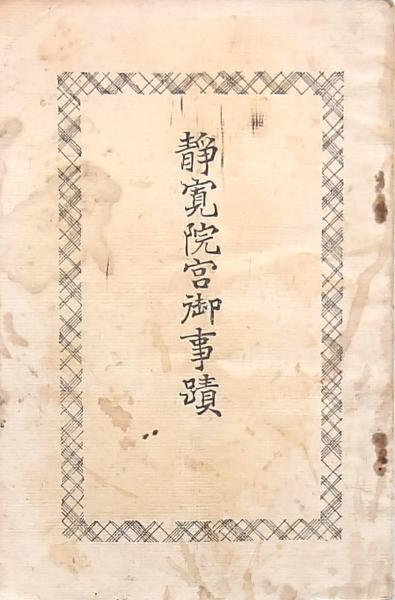 靜寛院宮御事蹟